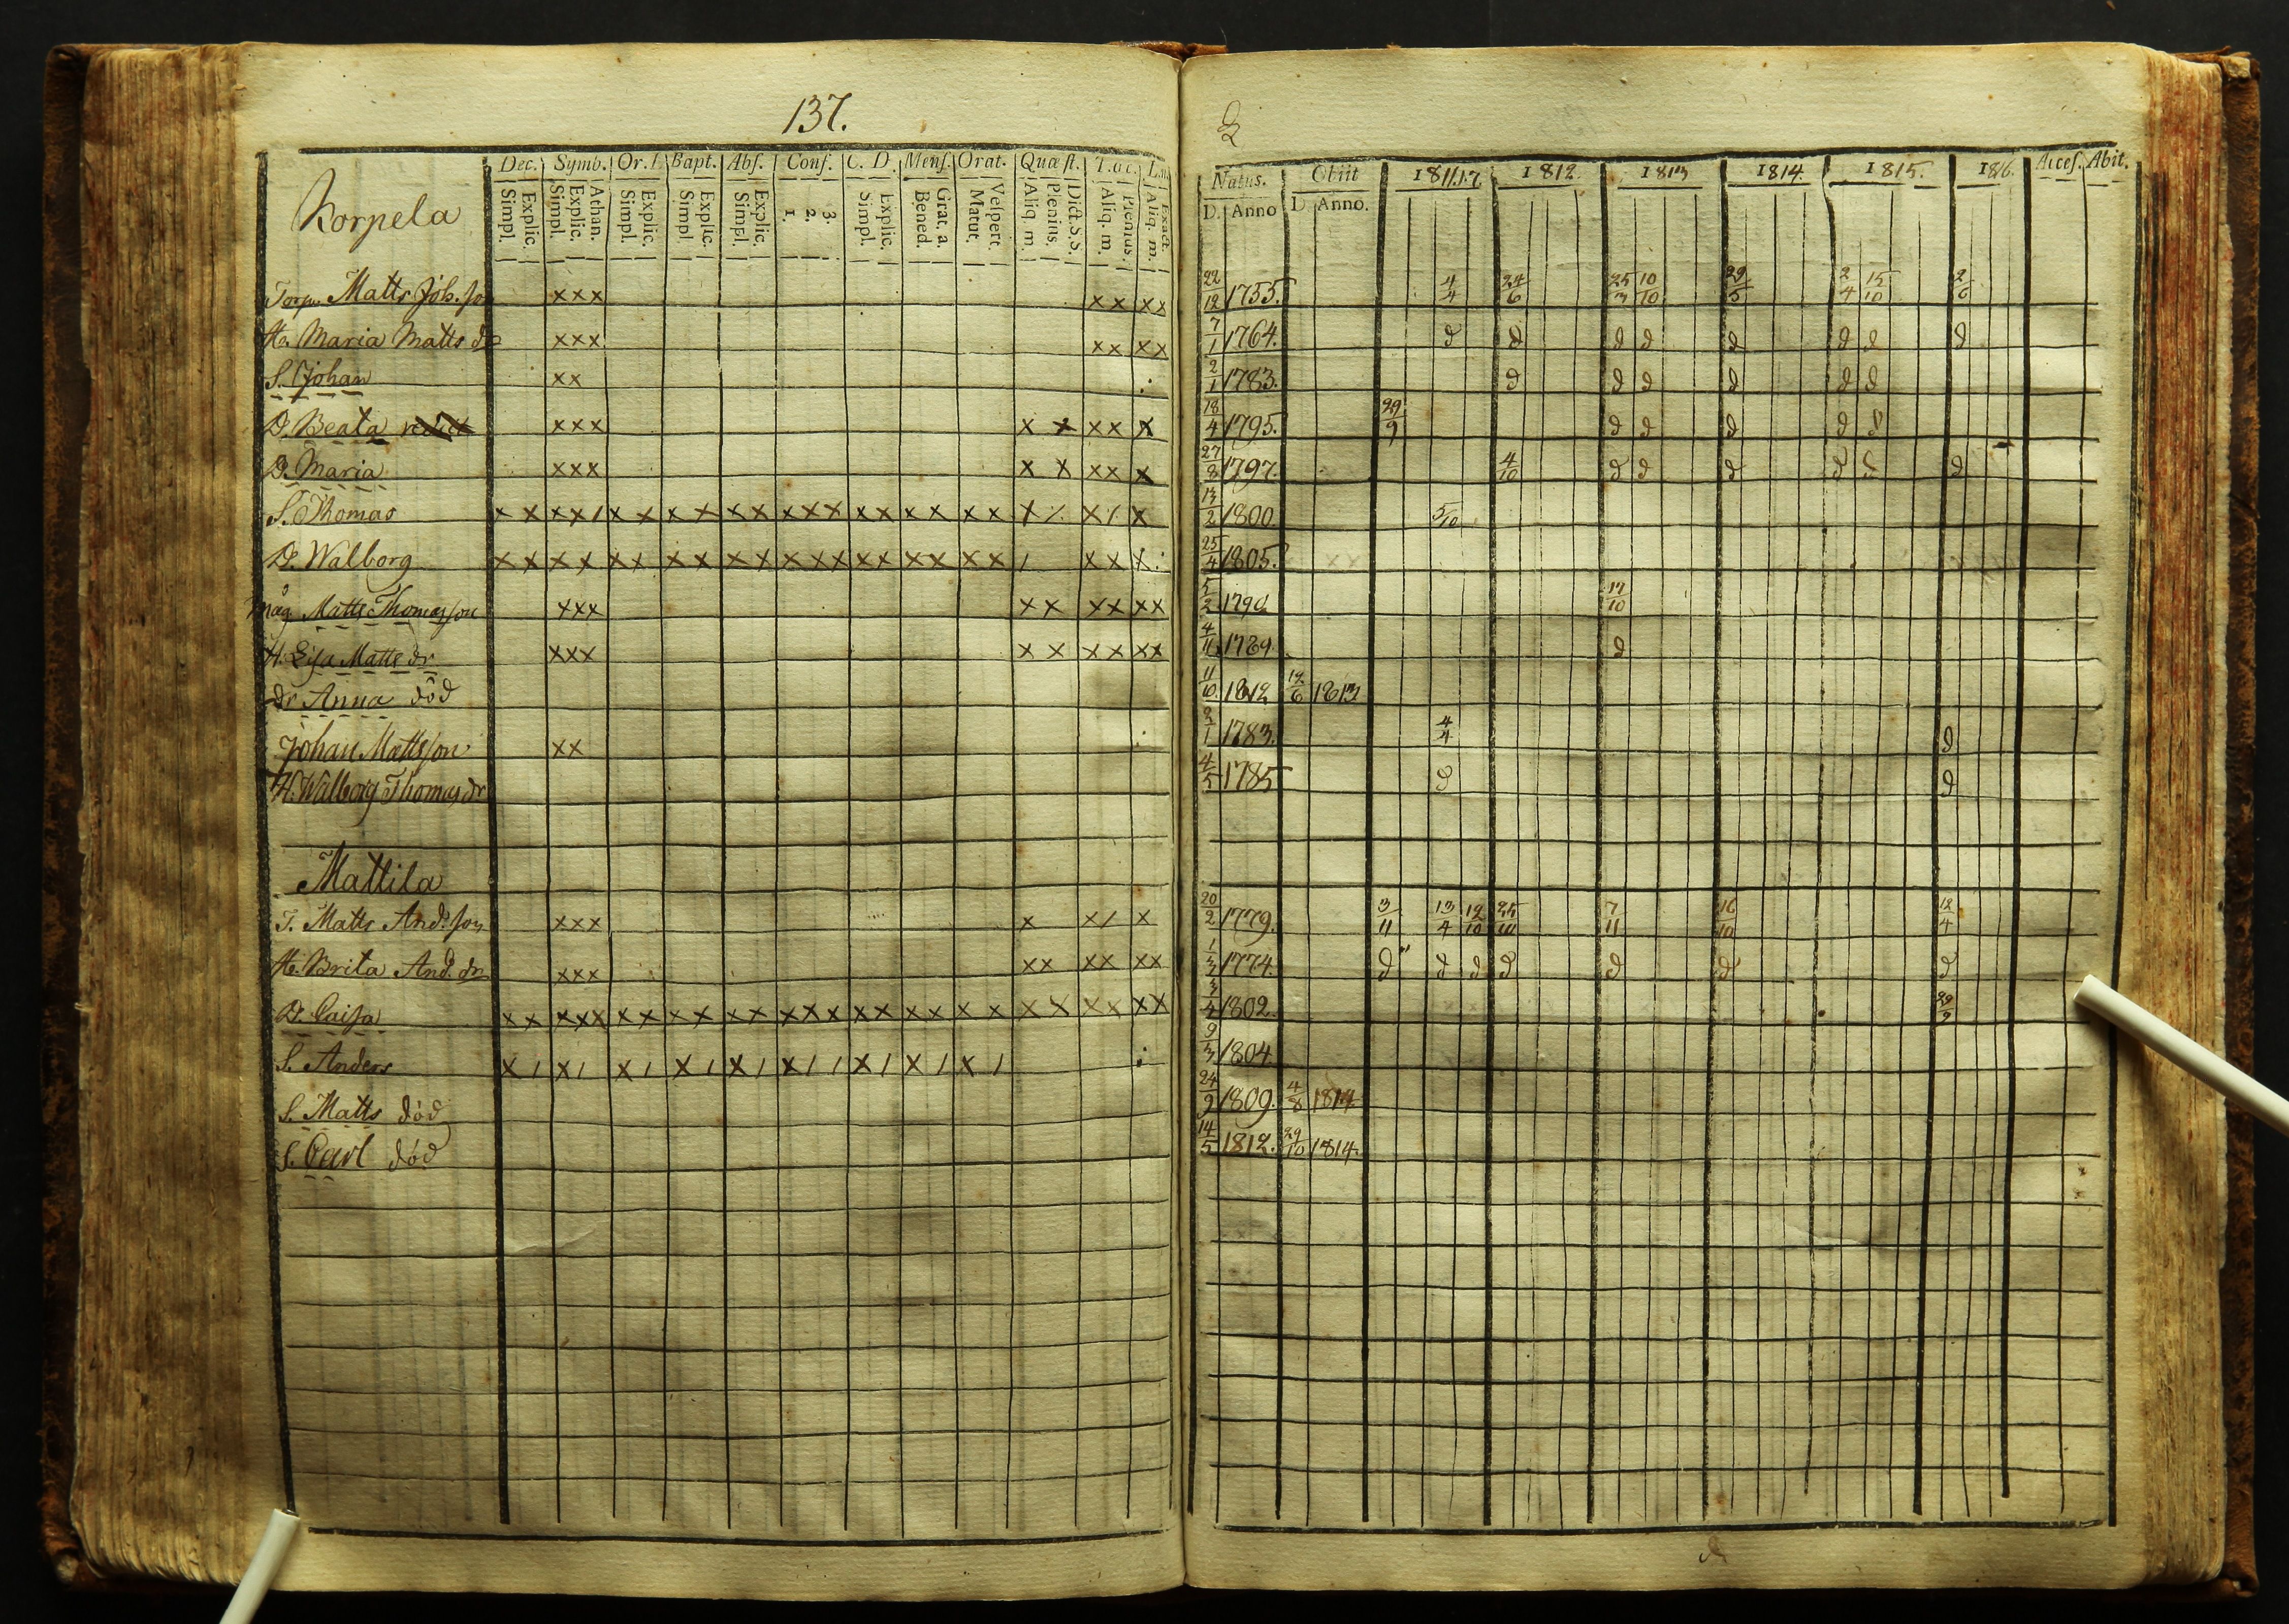 137.
Dec. Symb. Or. D. Bapt. Abſ. Conf. C. D. Menſ. Orat. Quæſt.
Korpela
Explic. Simpl. Athan. Explic. Simpl. Explic. Simpl. Explic. Simpl. Explic. Simpl. 3. 2. 1. Explic. Simpl. Grat. a. Bened. Veſpert. Matut. Dict. S.S. Plenius. Aliq. m. Plenius. Aliq. m. Exact. Aliq. m.
Torp. Matts Joh.son xxx xx xx
H. Maria Matts dr xxx xx xx
S. Johan xx
D. Beata xxx x x xx x
D. Maria xxx x x xx x
S. Thomas x x x x / x x x x x x x x x x x x x x x x x / x
D. Walborg x x x x x x x x x x x x x x x x x x x x / x x
Måg Matts Thomasson xxx xx xx xx
H. Lisa Matts dr xxx x x x x xx
dr Anna död
Johan Mattsson xx
H. Walborg Thomas dr
Mattila
T. Matts And.son xxx x x/ x
H. Brita And. dr xxx xx xx xx
D. Caisa x x xxx x x x x x x x x x x x x x x x x x x x x x x
S. Anders x / x / x / x / x / x / / x / x / x /
S. Matts död
S. Carl död
Natus. Obiit 1811.17 1812. 1813 1814. 1815. 1816. Acceſ. Abit.
D. Anno D. Anno.
22/12 1755. 4/4 24/6 25/3 10/10 29/5 2/4 15/10 2/6
7/1 1764. d d d d d d d d
2/1 1783. d d d d d d
18/4 1795. 29/9 d d d d d
27/8 1797. 4/10 d d d d d d
13/2 1800. 5/10
25/4 1805.
5/2 1790. 17/10
4/11 1789. d
11/10 1812 12/6 1813
2/1 1783. 4/4 d
4/5 1785 d d
20/2 1779. 3/11 13/4 12/10 25/10 7/11 16/10 12/4
1/3 1774. d d d d d d d
3/4 1802. 29/9
9/3 1804.
24/9 1809. 4/8 1814
14/5 1812. 29/10 1814.